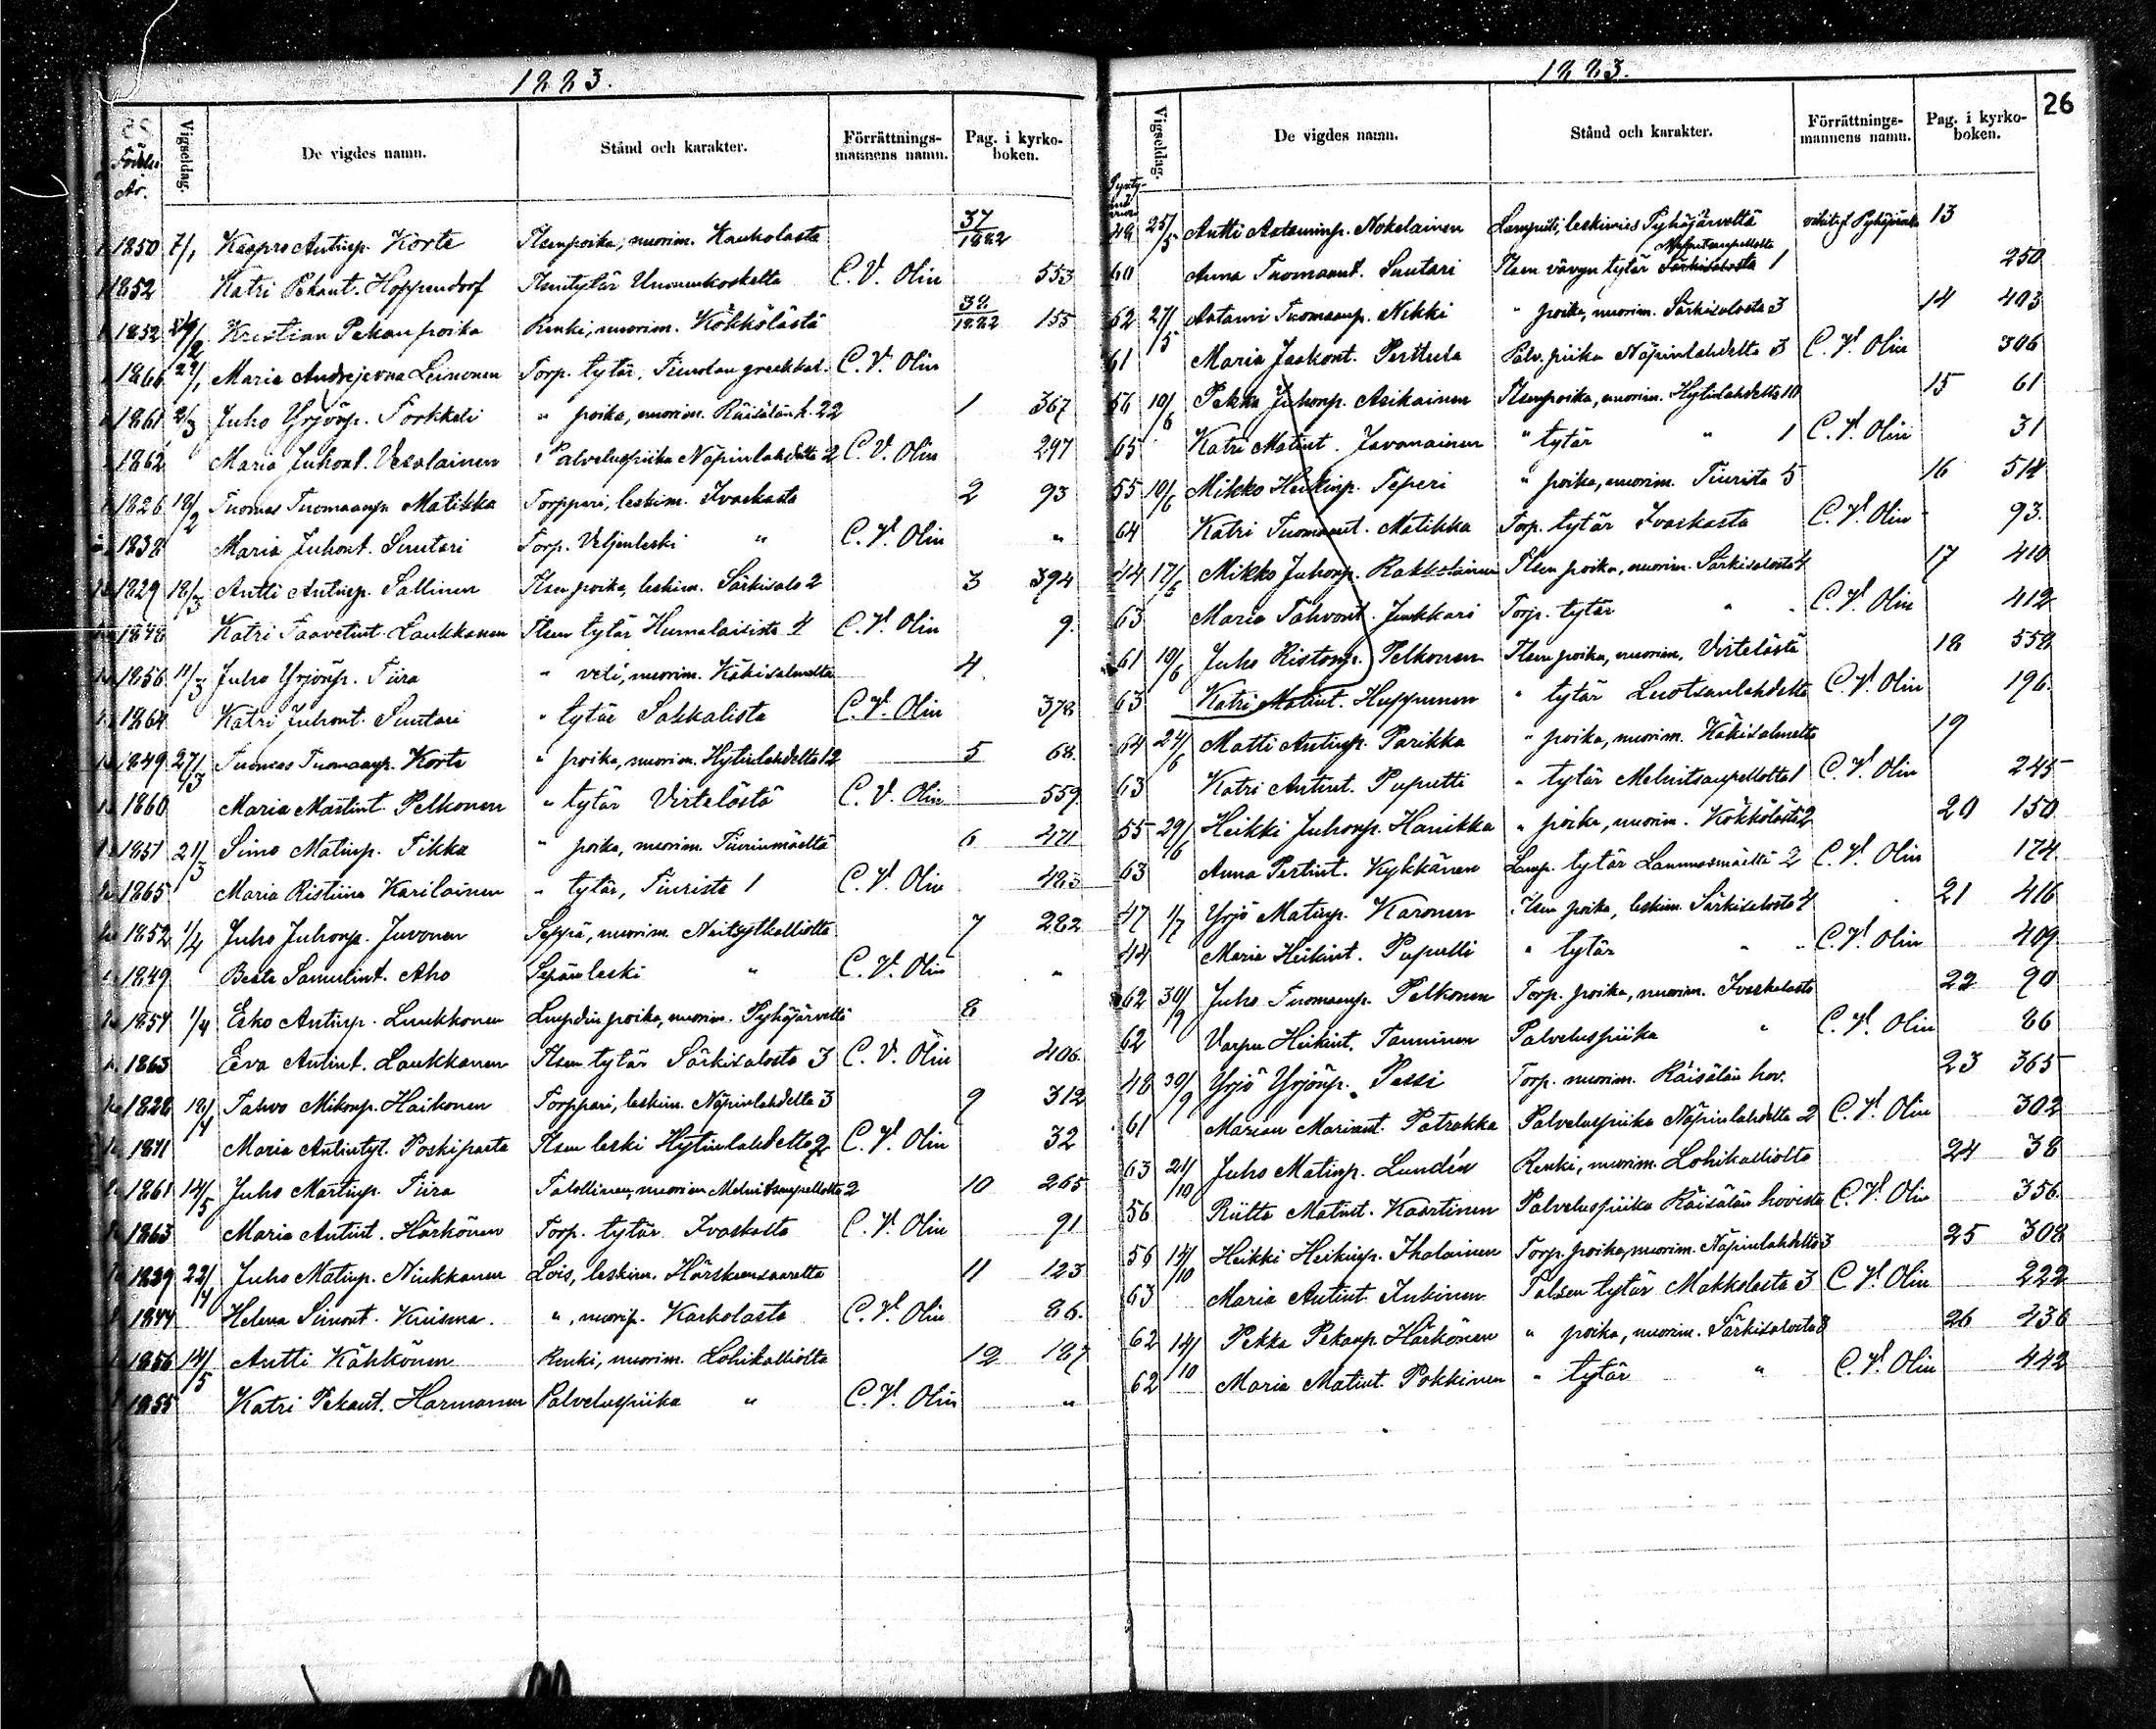 1883.
Födelse År.
Vigseldag.
De vigdes namn.
Stånd och karakter.
Förrättnings-mannens namn.
Pag. i kyrko-boken.
1850 7/1 Kaspro Antinp. Korte Tlsenpoika, nuorim. Kaukolasta 37/1882
1852 Katri Pekant. Hoppendorf Tlsentytär Unnunkoskelta C. V. Olin 553
1852 Kristian Pekanpoika Renki, nuorim. Kökkölästä 38/1882 155
1866 29/1 Maria Andrejevna Leinonen Torp. tytär, Tiurulan C. V. Olin
1861 2/3 Juho Yrjönp. Torkkeli " poika, nuorim. Räisälän h. 22 1 367
1862 Maria Juhont. Vesalainen Palveluspiika Näpinlahdelta 2 C. V. Olin 297
1826 18/2 Tuomas Tuomaanp. Matikka Torppari, leskim. Ivaskasta 2 93
1838 Maria Juhont. Suutari Torp. Veljenleski " C. V. Olin "
1829 18/3 Antti Antinp. Sallinen Tlsen poika, leskim. Särkisalo 2 3 394
1848 Katri Taavetint. Laukkanen Tlsen tytär Humalaisista 4 C. V. Olin 9.
1856 11/3 Juho Yrjönp. Tiira " veli, nuorim. Käkisalmelta 4
1864 Katri Juhont. Suutari " tytär Sakkalista C. V. Olin 378
1849 27/3 Tuomas Tuomaanp. Korte " poika, nuorim. Hytinlahdelta 12 5 68
1860 Maria Martint. Pelkonen " tytär Virtelästä C. V. Olin 559
1857 21/3 Simo Matinp. Tikka " poika, nuorim. Tiurinmäeltä 6 471
1865 Maria Ristiina Karilainen " tytär, Tiurista 1 C. V. Olin 483
1852 1/4 Juho Juhonp. Juvonen Seppä, nuorim. Neitsytkalliolta 7 282
1849 Beata Samulint. Aho Sepänleski " C. V. Olin "
1857 1/4 Esko Antinp. Luukkonen Lampdin poika, nuorim. Pyhäjärveltä 8
1863 Eva Antint. Laukkanen Tlsen tytär Särkisalosta 3 C. V. Olin 406
1828 18/4 Tahvo Mikonp. Haikonen Torppari, leskim. Näpinlahdelta 3 9 312
1841 Maria Antintyt. Poskiparta Tlsen leski Hytinlahdelta 2 C. V. Olin 32
1861 14/5 Juho Martinp. Tiira Talollinen, nuorim. Melnitsanpellolta 2 10 265
1863 Maria Antint. Härkönen Torp. tytär Ivaskasta C. V. Olin 91
1839 22/4 Juho Matinp. Niukkanen Lois, leskim. Härskeensaarelta 11 123
1844 Helena Simont. Kuisma. ", nuorip. Karholasta C. V. Olin 86.
1856 14/5 Antti Kähkönen Renki, nuorim. Lohikalliolta 12 187
1855 Katri Pekant. Harmanen Palveluspiika " C. V. Olin "
1883.
26
Vigseldag.
De vigdes namn.
Stånd och karakter.
Förrättnings-mannens namn.
Pag. i kyrko-boken.
48 25/5 Antti Antaminp. Nokelainen Lampuoti, leskimies Pyhäjärveltä 13
60 Anna Tuomaant. Suutari Tlsen vävyn tytär Melnitsanpellolta 1 250
62 27/5 Antami Tuomaanp. Nikki " poika, nuorim. Särkisalosta 3 14 403
61 Maria Jaakont. Perttula Palv. piika Näpinlahdelta 3 C. V. Olin 306
56 10/6 Pekka Juhonp. Asikainen Tlsenpoika, nuorim. Hytinlahdelta 10 15 61
65 Katri Matint. Javanainen " tytär " 1 C. V. Olin 31
55 10/6 Mikko Heikinp. Teperi " poika, nuorim. Tiurista 5 16 514
64 Katri Tuomaant. Matikka Torp. tytär Ivaskasta C. V. Olin 93.
44 17/6 Mikko Juhonp. Rakkolainen Tlsen poika, nuorim. Särkisalosta 4 17 410
63 Maria Tahvont. Junkkari Torp. tytär " C. V. Olin 412
61 10/6 Juho Ristonp. Pelkonen Tlsen poika, nuorim. Virtelästä 18 558
63 Katri Matint. Huppunen " tytär Luotsanlahdelta C. V. Olin 196.
64 24/6 Matti Antinp. Parikka " poika, nuorim. Käkisalmelta 19
63 Katri Antint. Puputti " tytär Melnitsanpellolta 1 C. V. Olin 245
55 29/6 Heikki Juhonp. Hanikka " poika, nuorim. Kökkölästä 2 20 150
63 Anna Pertint. Kykkänen Lamp. tytär Lammasmäeltä 2 C. V. Olin 174
47 1/7 Yrjö Matinp. Karonen Tlsen poika, leskim. Särkisalosta 4 21 416
44 Maria Heikint. Puputti " tytär " C. V. Olin 409
62 30/9 Juho Tuomaanp. Pelkonen Torp. poika, nuorim. Ivaskalasta 22 90
62 Varpu Heikint. Tanninen Palveluspiika " C. V. Olin 86
48 30/9 Yrjö Yrjönp. Passi Torp. nuorim. Räisälän hov. 23 365
61 Marian Mariant. Patrakka Palveluspiika Näpinlahdelta 2 C. V. Olin 302
63 21/10 Juho Matinp. Lundén Renki, nuorim. Lohikalliolta 24 38
56 Riitta Matint. Kaartinen Palveluspiika Räisälän hovista C. V. Olin 356
56 14/10 Heikki Heikinp. Ihalainen Torp. poika, nuorim. Näpinlahdelta 3 25 308
63 Maria Antint. Inkinen Talsen tytär Makkolasta 3 C. V. Olin 222
62 14/10 Pekka Pekanp. Härkönen " poika, nuorim. Särkisalosta 8 26 436
62 Maria Matint. Pokkinen " tytär " C. V. Olin 442